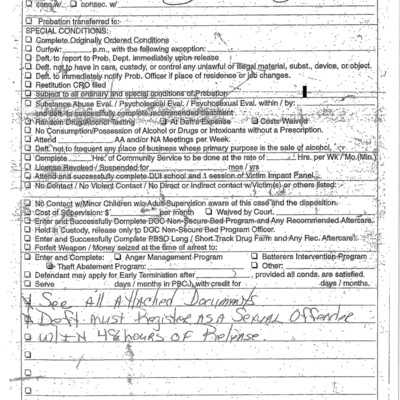 ☐ conc. w/ ☐ consec. w/
☐ Probation transferred to:
SPECIAL CONDITIONS:
☐ Complete Originally Ordered Conditions
☐ Curfew: p.m., with the following exception:
☐ Deft. to report to Prob. Dept. immediately upon release
☐ Deft. not to have in care, custody, or control any unlawful or illegal material, subst., device, or object.
☐ Deft. to immediately notify Prob. Officer if place of residence or job changes.
☐ Restitution CRO filed
☐ Subject to all ordinary and special conditions of Probation
☐ Substance Abuse Eval. / Psychological Eval. / Psychosexual Eval. within / by:
and deft. to successfully complete recommended treatment
☐ Random Drug/Alcohol Testing ☐ At Deft's Expense ☐ Costs Waived
☐ No Consumption/Possession of Alcohol or Drugs or Intoxicants without a Prescription.
☐ Attend AA and/or NA Meetings per Week.
☐ Deft. not to frequent any place of business whose primary purpose is the sale of alcohol,
☐ Complete Hrs. of Community Service to be done at the rate of Hrs. per Wk / Mo.(Min.)
☐ License Revoked / Suspended for mos / yrs
☐ Attend and successfully complete DUI school and 1 session of Victim Impact Panel.
☐ No Contact / No Violent Contact / No Direct or Indirect contact w/Victim(s) or others listed:
☐ No Contact w/Minor Children w/o Adult Supervision aware of this case and the disposition.
☐ Cost of Supervision: $ per month ☐ Waived by Court.
☐ Enter and Successfully Complete DOC Non-Secure Bed Program and Any Recommended Aftercare.
☐ Held in Custody, release only to DOC Non-Secure Bed Program Officer.
☐ Enter and Successfully Complete PBSO Long / Short Track Drug Farm and Any Rec. Aftercare.
☐ Forfeit Weapon / Money seized at the time of arrest to:
☐ Enter and Complete: ☐ Anger Management Program ☐ Batterers Intervention Program
☐ Theft Abatement Program: ☐ Other:
☐ Defendant may apply for Early Termination after , provided all conds. are satisfied.
☐ Serve days / months in PBCJ, with credit for days / months.
See All Attached Documents
Deft must Register AS A Sexual Offender
W/IN 48 hours OF Release.